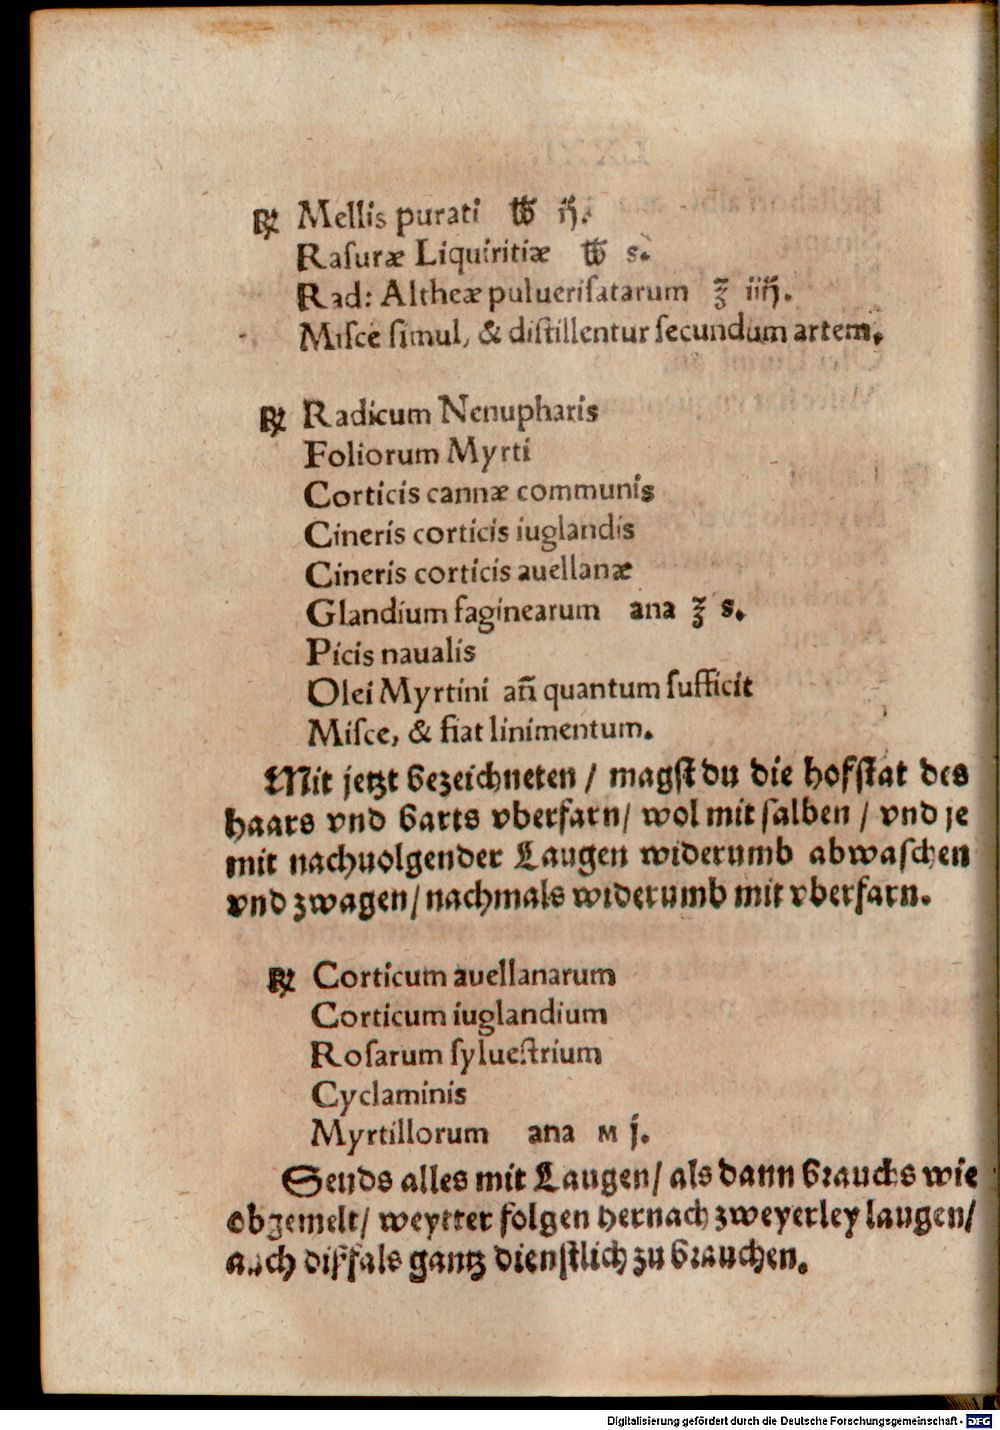 ℞ Mellis purati ℔ ij.
Raſuræ Liquiritiæ ℔ s.
Rad: Altheæ pulueriſatarum ℥ iiij.
Miſce ſimul, & diſtillentur ſecundum artem.
℞ Radicum Nenupharis
Foliorum Myrti
Corticis cannæ communis
Cineris corticis iuglandis
Cineris corticis auellanæ
Glandium faginearum ana ℥ s.
Picis naualis
Olei Myrtini añ quantum ſufficit
Miſce, & fiat linimentum.
Mit jetzt bezeichneten / magſt du die hofſtat des
haars vnd barts vberfarn / wol mit ſalben / vnd je
mit nachuolgender Laugen widerumb abwaſchen
vnd zwagen / nachmals widerumb mit vberfarn.
℞ Corticum auellanarum
Corticum iuglandium
Roſarum ſylueſtrium
Cyclaminis
Myrtillorum ana M j.
Seuds alles mit Laugen / als dann brauchs wie
obgemelt / weytter folgen hernach zweyerley laugen /
auch diſfals gantz dienſtlich zu brauchen.
Digitalisierung gefördert durch die Deutsche Forschungsgemeinschaft - DFG